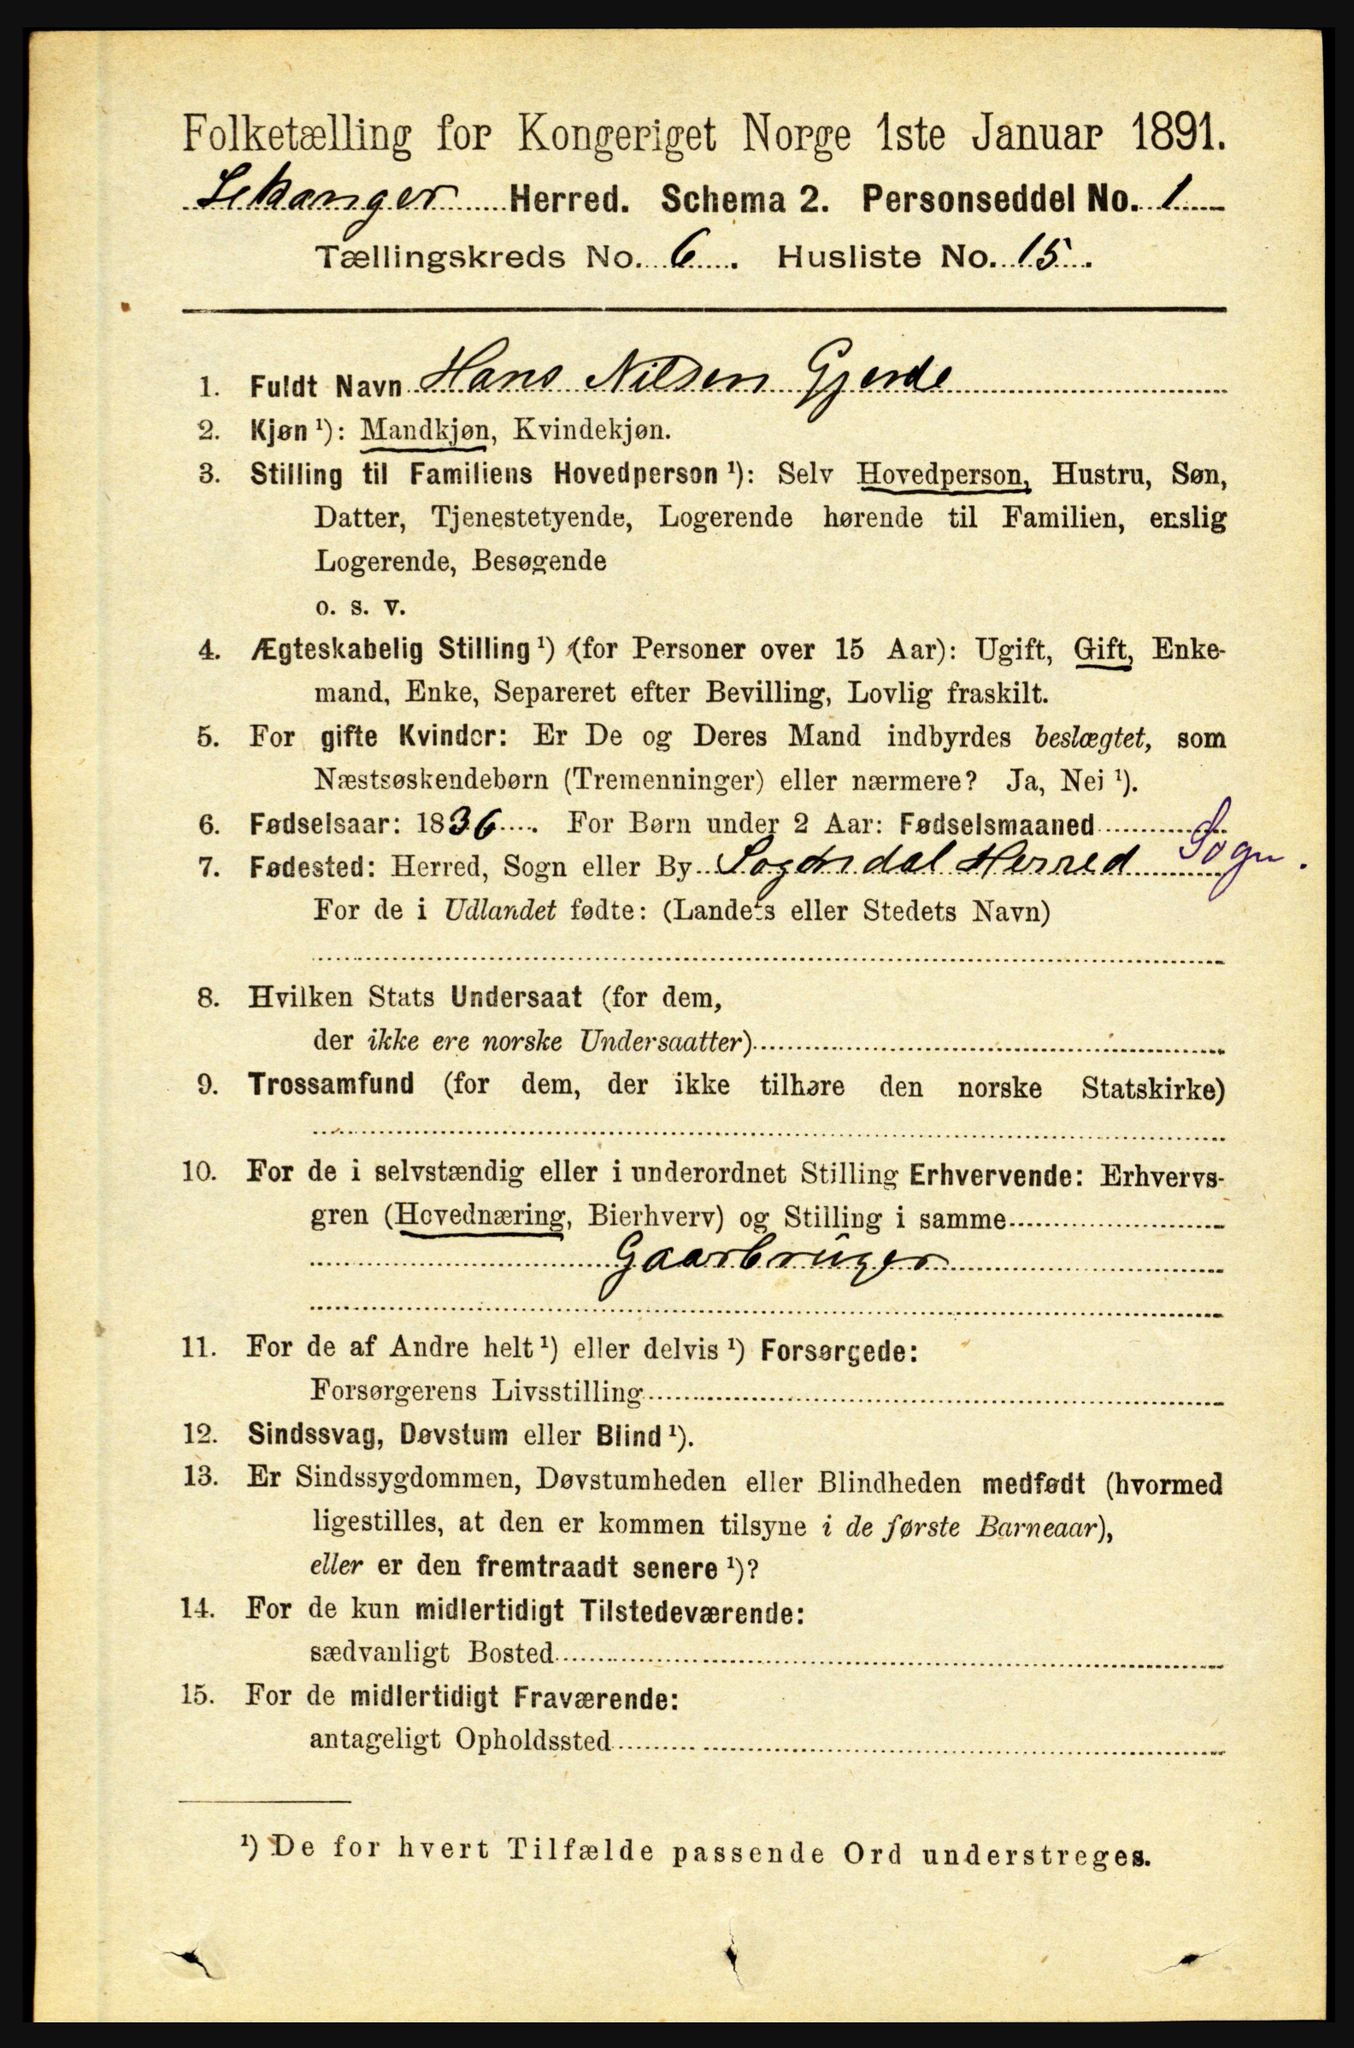 Folketælling for Kongeriget Norge 1ste Januar 1891.
Lekanger Herred. Schema 2. Personseddel No. 1
Tællingskreds No. 6. Husliste No. 15.
1. Fuldt Navn Hans Nilsen Gjerde
2. Kjøn ¹): Mandkjøn, Kvindekjøn.
3. Stilling til Familiens Hovedperson ¹): Selv Hovedperson, Hustru, Søn,
Datter, Tjenestetyende, Logerende hørende til Familien, enslig
Logerende, Besøgende
o. s. v.
4. Ægteskabelig Stilling ¹) (for Personer over 15 Aar): Ugift, Gift, Enke-
mand, Enke, Separeret efter Bevilling, Lovlig fraskilt.
5. For gifte Kvinder: Er De og Deres Mand indbyrdes beslægtet, som
Næstsøskendebørn (Tremenninger) eller nærmere? Ja, Nei ¹).
6. Fødselsaar: 1836. For Børn under 2 Aar: Fødselsmaaned
7. Fødested: Herred, Sogn eller By Sogndal Herred Sogn.
For de i Udlandet fødte: (Landets eller Stedets Navn)
8. Hvilken Stats Undersaat (for dem,
der ikke ere norske Undersaatter)
9. Trossamfund (for dem, der ikke tilhøre den norske Statskirke)
10. For de i selvstændig eller i underordnet Stilling Erhvervende: Erhvervs-
gren (Hovednæring, Bierhverv) og Stilling i samme
Gaarbruger
11. For de af Andre helt ¹) eller delvis ¹) Forsørgede:
Forsørgerens Livsstilling
12. Sindssvag, Døvstum eller Blind ¹).
13. Er Sindssygdommen, Døvstumheden eller Blindheden medfødt (hvormed
ligestilles, at den er kommen tilsyne i de første Barneaar),
eller er den fremtraadt senere ¹)?
14. For de kun midlertidigt Tilstedeværende:
sædvanligt Bosted
15. For de midlertidigt Fraværende:
antageligt Opholdssted
¹) De for hvert Tilfælde passende Ord understreges.